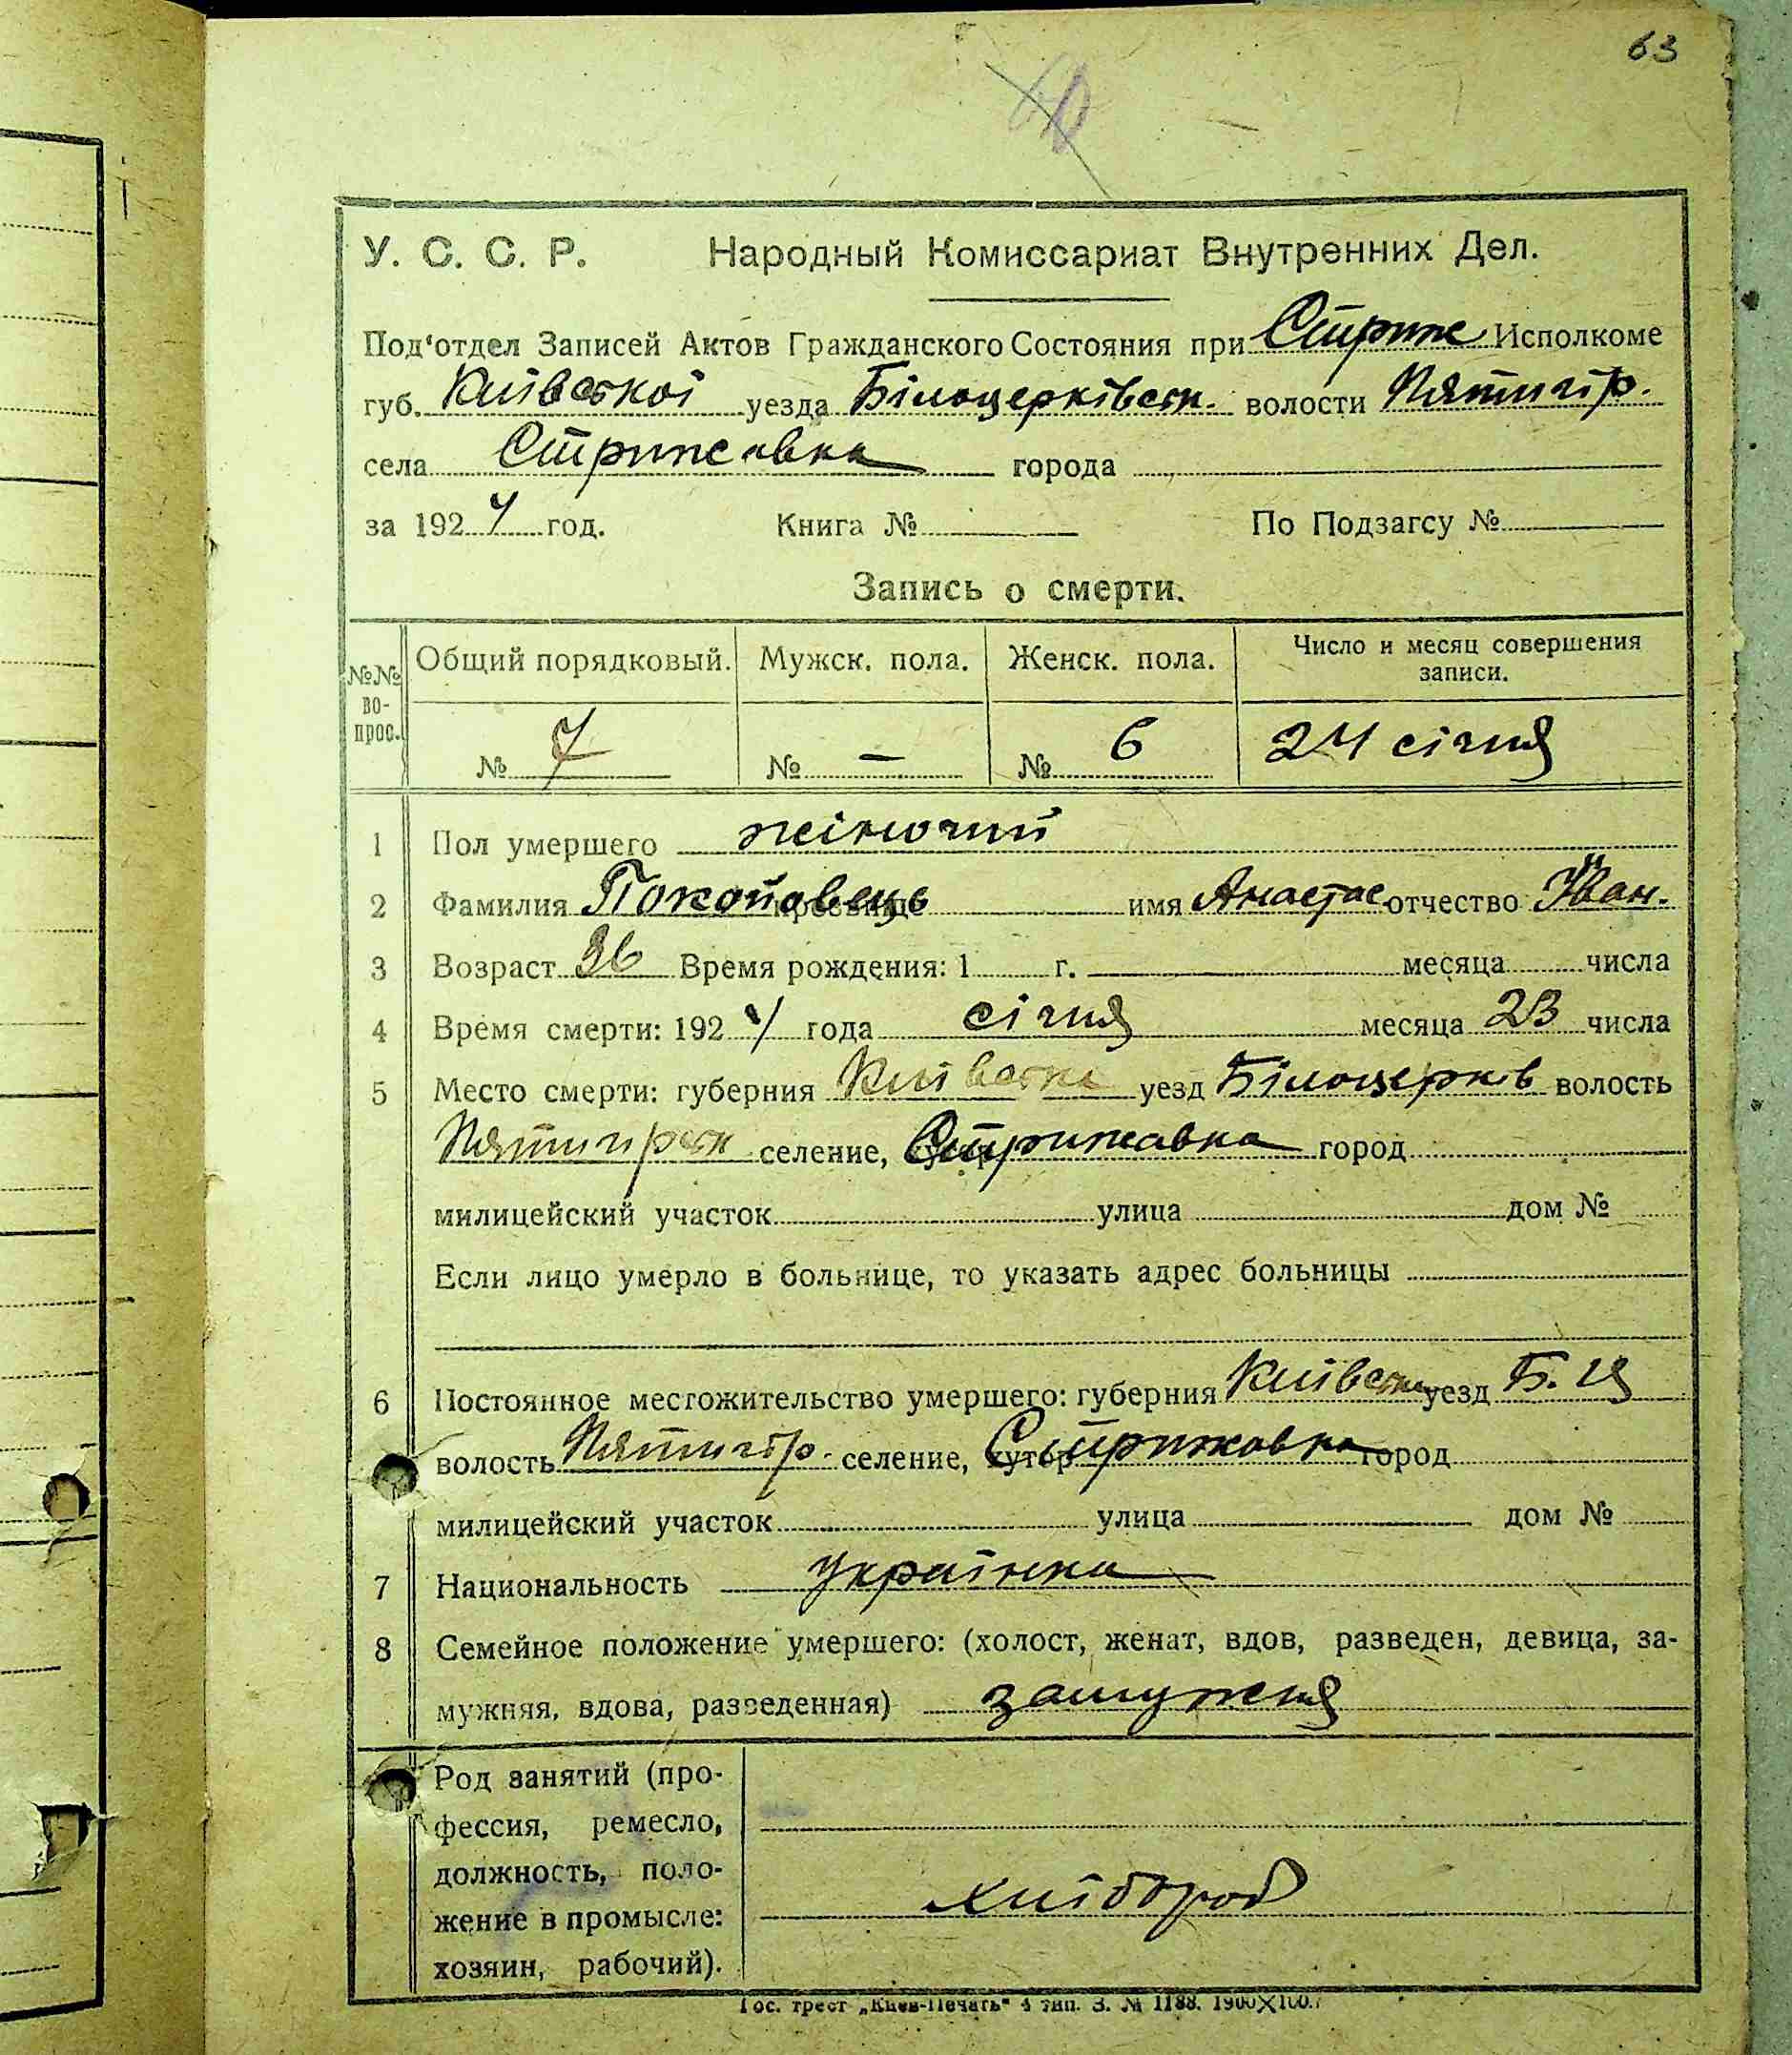 63
У. С. С. Р. Народный Комиссариат Внутренних Дел.
Под'отдел Записей Актов Гражданского Состояния при Стриж Исполкоме
губ. Київської уезда Білоцерківськ. волости Пятигір.
села Стрижавка города
за 1924 год. Книга № По Подзагсу №
Запись о смерти.
№№ вопрос. Общий порядковый. Мужск. пола. Женск. пола. Число и месяц совершения записи.
№ 7 № — № 6 24 січня
1 Пол умершего жіночий
2 Фамилия имя Анастас отчество Іван.
3 Возраст 36 Время рождения: 1 г. месяца числа
4 Время смерти: 1924 года січня месяца 23 числа
5 Место смерти: губерния Київська уезд Білоцерків волость
Пятигірськ селение, Стрижавка город
милицейский участок улица дом №
Если лицо умерло в больнице, то указать адрес больницы
6 Постоянное местожительство умершего: губерния Київськ уезд Б. Ц
волость Пятигір. селение, хутор Стрижовка город
милицейский участок улица дом №
7 Национальность українка
8 Семейное положение умершего: (холост, женат, вдов, разведен, девица, за-
мужняя, вдова, разведенная) замужня
Род занятий (про-
фессия, ремесло,
должность, поло-
жение в промысле:
хозяин, рабочий).
хлібороб
Гос. трест „Киев-Печать" 4 тип. З. № 1188. 1900×100.